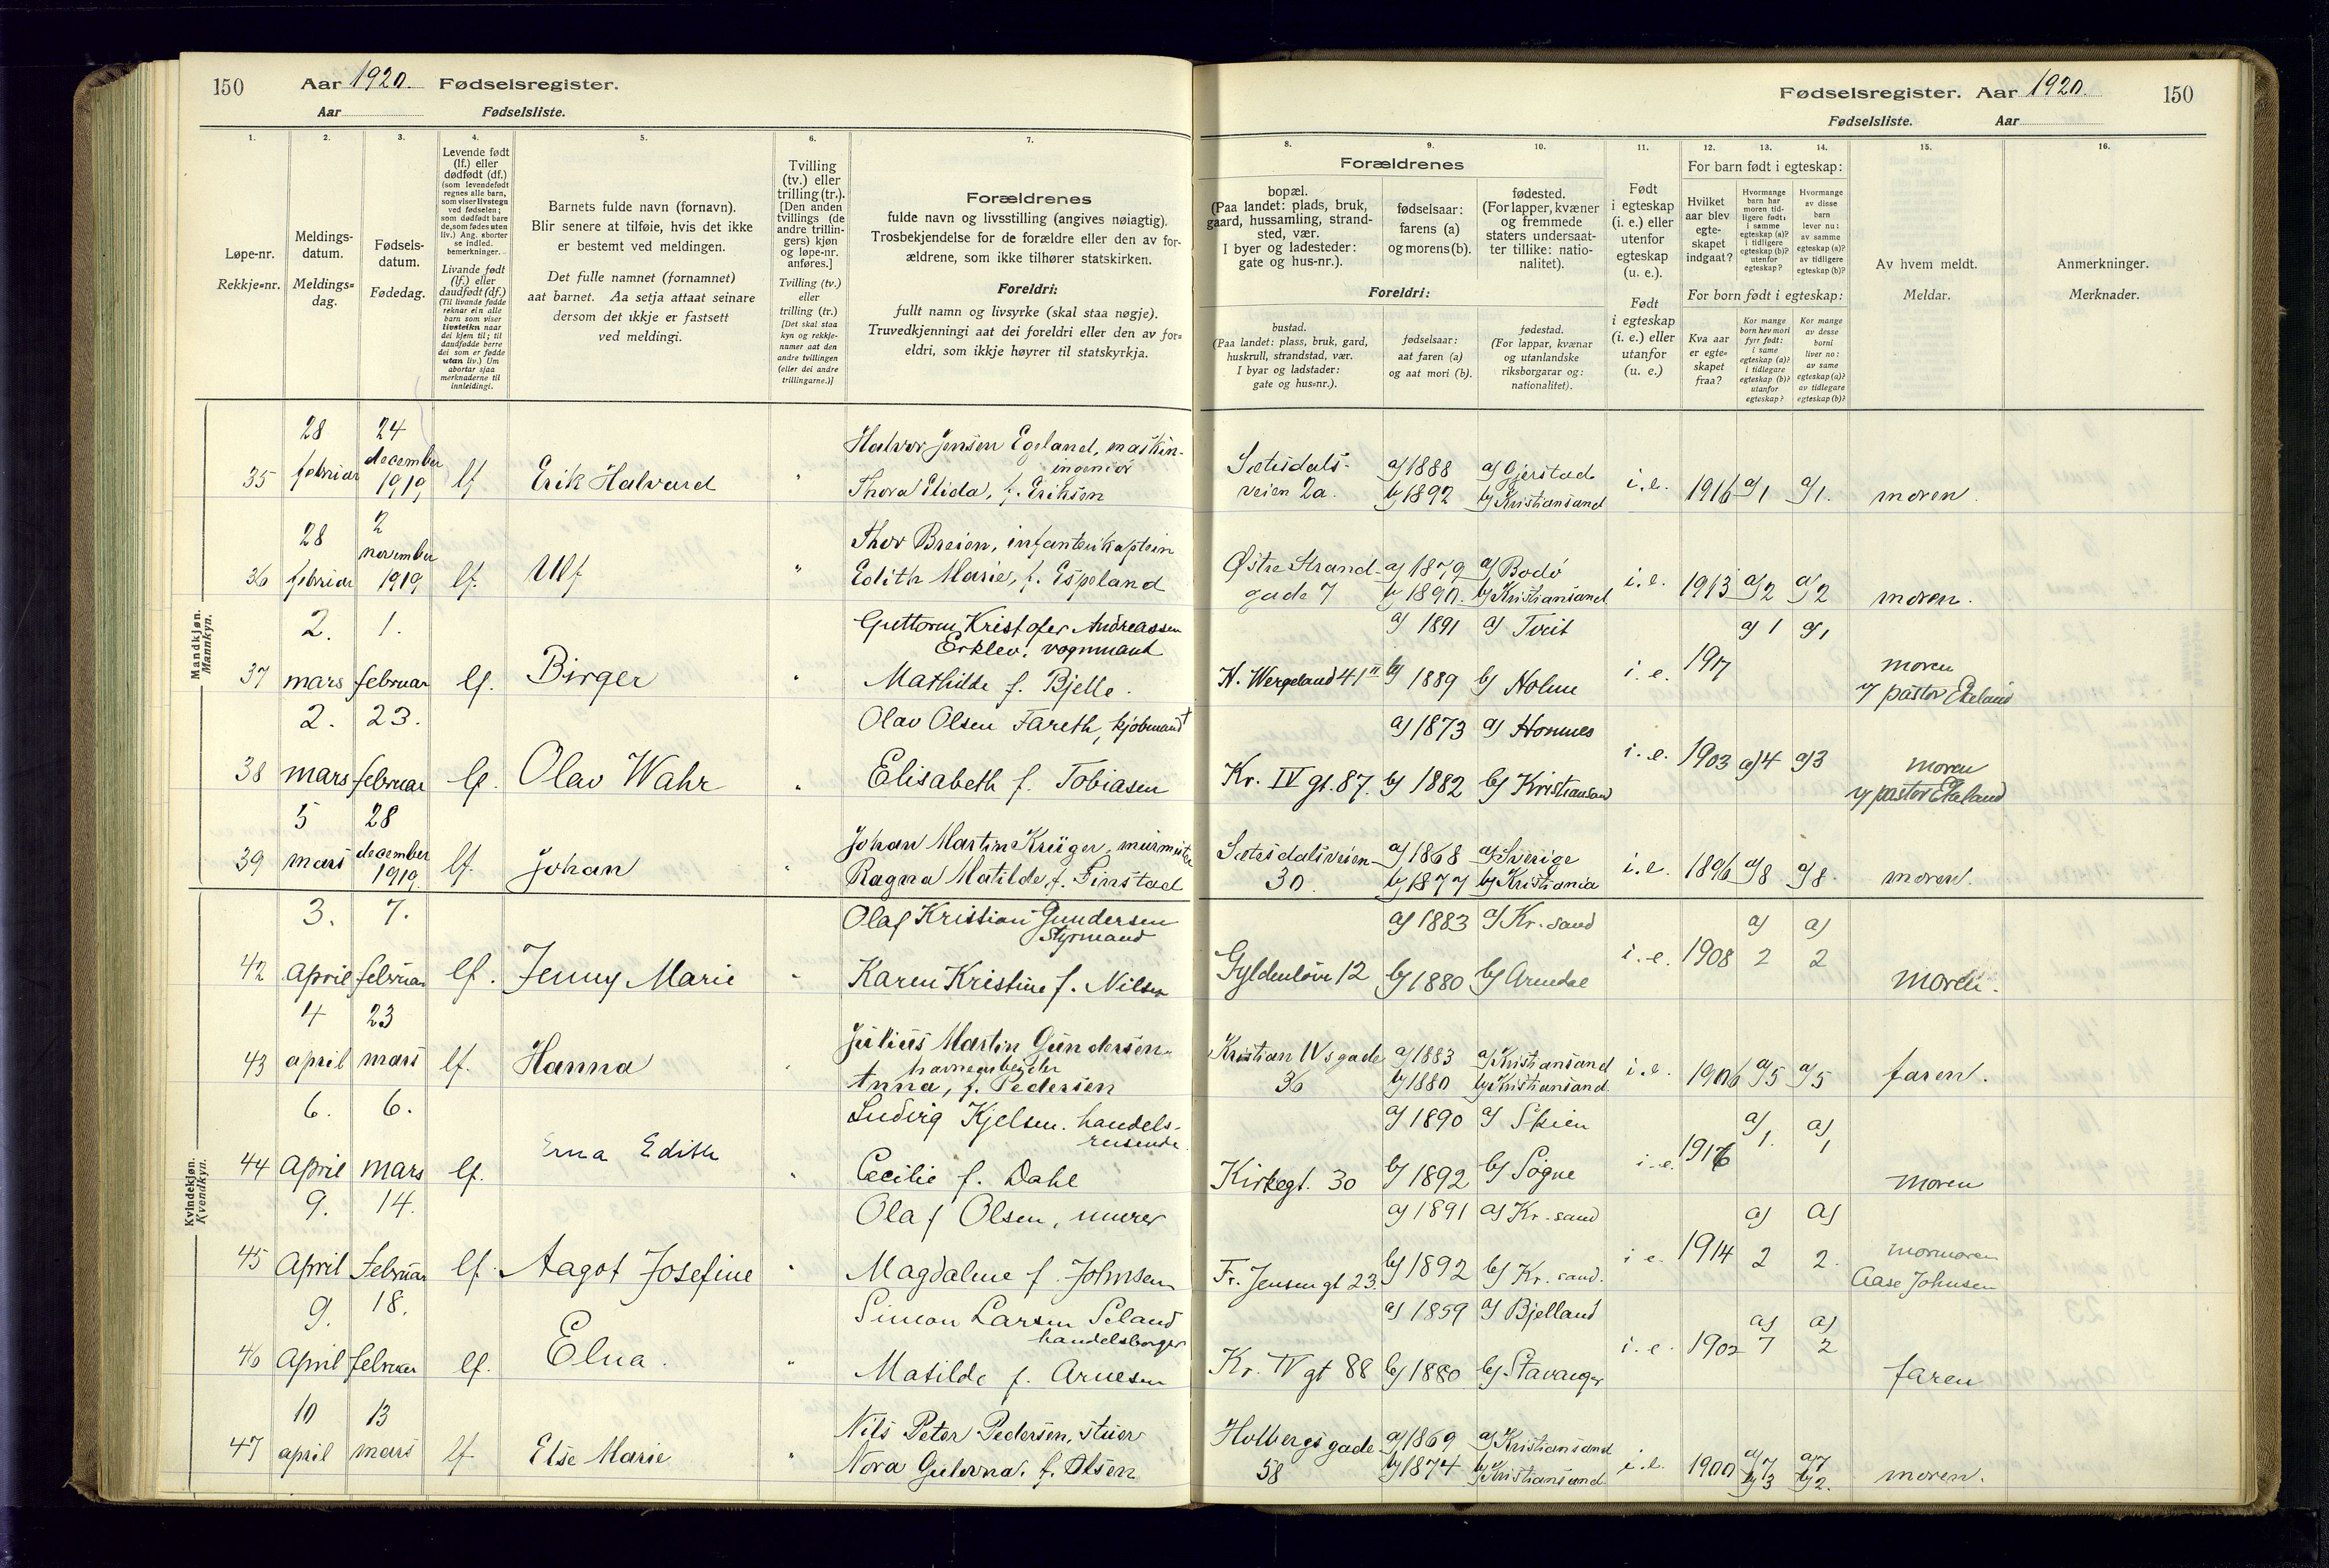 150
Aar 1920. Fødselsregister.
Aar Fødselsliste.
Fødselsregister. Aar 1920.
150
Fødselsliste. Aar
1.
Løpe-nr.
Rekkje-nr.
2.
Meldings-
datum.
Meldings-
dag.
3.
Fødsels-
datum.
Fødedag.
4.
Levende født
(lf.) eller
dødfødt (df.)
(som levendefødt
regnes alle barn,
som viser livstegn
ved fødselen;
som dødfødt bare
de, som fødes uten
liv.) Ang. aborter
se indled.
bemerkninger.
Livande født
(lf.) eller
daudfødt (df.)
(Til livande fødde
reknar ein alle
barn som viser
livsteikn naar
dei kjem til; til
daudfødde berre
dei som er fødde
utan liv.) Um
abortar sjaa
merknaderne til
innleidingi.
5.
Barnets fulde navn (fornavn).
Blir senere at tilføie, hvis det ikke
er bestemt ved meldingen.
Det fulle namnet (fornamnet)
aat barnet. Aa setja attaat seinare
dersom det ikkje er fastsett
ved meldingi.
6.
Tvilling
(tv.) eller
trilling (tr.).
[Den anden
tvillings (de
andre trillin-
gers) kjøn
og løpe-nr.
anføres.]
Tvilling (tv.)
eller
trilling (tr.)
[Det skal staa
kyn og rekkje-
numer aat den
andre tvillingen
(eller dei andre
trillingarne.)]
7.
Forældrenes
fulde navn og livsstilling (angives nøiagtig).
Trosbekjendelse for de forældre eller den av for-
ældrene, som ikke tilhører statskirken.
Foreldri:
fullt namn og livsyrke (skal staa nøgje).
Truvedkjenningi aat dei foreldri eller den av for-
eldri, som ikkje høyrer til statskyrkja.
8.
Forældrenes
bopæl.
(Paa landet: plads, bruk,
gaard, hussamling, strand-
sted, vær.
I byer og ladesteder:
gate og hus-nr.).
Foreldri:
bustad.
(Paa landet: plass, bruk, gard,
huskrull, strandstad, vær.
I byar og ladstader:
gate og hus-nr.).
9.
fødselsaar:
farens (a)
og morens (b).
fødselsaar:
aat faren (a)
og aat mori (b).
10.
fødested.
(For lapper, kvæner
og fremmede
staters undersaat-
ter tillike: natio-
nalitet).
fødestad.
(For lappar, kvænar
og utanlandske
riksborgarar og:
nationalitet).
11.
Født
i egteskap
(i. e.) eller
utenfor
egteskap
(u. e.).
Født
i egteskap
(i. e.) eller
utanfor
(u. e.)
12.
For barn født i egteskap:
Hvilket
aar blev
egte-
skapet
indgaat?
For born født i egteskap:
Kva aar
er egte-
skapet
fraa?
13.
Hvormange
barn har
moren tid-
ligere født,
i samme
egteskap (a)?
i tidligere
egteskap (b)?
utenfor
egteskap?
Kor mange
born hev mori
fyrr født:
i same
egteskap (a)?
i tidlegare
egteskap (b)?
utanfor
egteskap?
14.
Hvormange
av disse
barn
lever nu:
av samme
egteskap (a)?
av tidligere
egteskap (b)?
Kor mange
av desse
borni
liver no:
av same
egteskap (a)?
av tidlegare
egteskap (b)?
15.
Av hvem meldt.
Meldar.
16.
Anmerkninger.
Merknader.
Mandkjøn.
Mannkyn.
35 28 februar 24 december 1919 lf. Erik Halvard " Halvor Jensen Egeland, maskin-
ingeniør
Thora Elida, f. Eriksen
Sætesdals-
veien 2a. a) 1888 b) 1892 a) Gjerstad b) Kristiansand i. e. 1916 a) 1 a) 1. moren.
36 28 februar 2 november 1919 lf. Ulf " Thor Breien, infanterikaptein
Edith Marie, f. Espeland
Østre Strand-
gade 7 a) 1879 b) 1890. a) Bodø b) Kristiansand i. e. 1913 a) 2 a) 2 moren.
37 2. mars 1. februar lf. Birger " Guttorm Kristofer Andreassen
Erklev. vognmand
Mathilde f. Bjelle.
H. Wergeland 41 II a) 1891 b) 1889 a) Tveit b) Holme i. e. 1917 a) 1 a) 1 moren
v/ pastor Ekeland
38 2. mars 23. februar lf. Olav Wahr " Olav Olsen Fareth, kjøbmand
Elisabeth f. Tobiasen
Kr. IV gt. 87. a) 1873 b) 1882 a) Hommes b) Kristiansand i. e. 1903 a) 4 a) 3 moren
v/ pastor Ekeland
39 5 mars 28 december 1919. lf. Johan " Johan Martin Krüger, murmester
Ragna Matilde, f. Finstad
Sætesdalsveien
30. a) 1868 b) 1877 a) Sverige b) Kristiania i. e. 1896 a) 8 a) 8. moren.
Kvindekjøn.
Kvendkyn.
42 3. April 7. februar lf. Jenny Marie " Olaf Kristian Gundersen
Styrmand
Karen Kristine f. Nilsen
Gyldenløve 12 a) 1883 b) 1880 a) Kr. sand b) Arendal i. e. 1908 a) 2 a) 2 moren.
43 4 april 23 mars lf. Hanna " Julius Martin Gundersen
havnearbeider
Anna, f. Pedersen
Kristian IVs gade
36 a) 1883 b) 1880 a) Kristiansand b) Kristiansand i. e. 1906 a) 5 a) 5 faren.
44 6. April 6. mars lf. Erna Edith " Ludvig Kjelsen. handels-
reisende.
Cecilie f. Dahl
Kirkegt. 30 a) 1890 b) 1892 a) Skien b) Søgne i. e. 1916 a) 1. a) 1 moren
45 9. April 14. februar lf. Aagot Josefine " Olaf Olsen, murer
Magdalene f. Johnsen
Fr. Jensens gt 23. a) 1891 b) 1892 a) Kr. sand b) Kr. sand. i. e. 1914 a) 2 a) 2. mormoren
Aase Johnsen
46 9. April 18. februar lf. Elna. " Simon Larsen Seland
handelsborger
Matilde f. Arnesen
Kr. IV gt 88 a) 1859 b) 1880 a) Bjelland b) Stavanger i. e. 1902 a) 7 a) 2 faren
47 10 april 13 mars lf. Else Marie " Nils Peter Pedersen, stuer
Nora Gulovna. f. Olsen
Holbergs gade
58 a) 1869 b) 1874 a) Kristiansand b) Kristiansand i. e. 1900 a) 7 b) 3 a) 7 b) 2. moren.